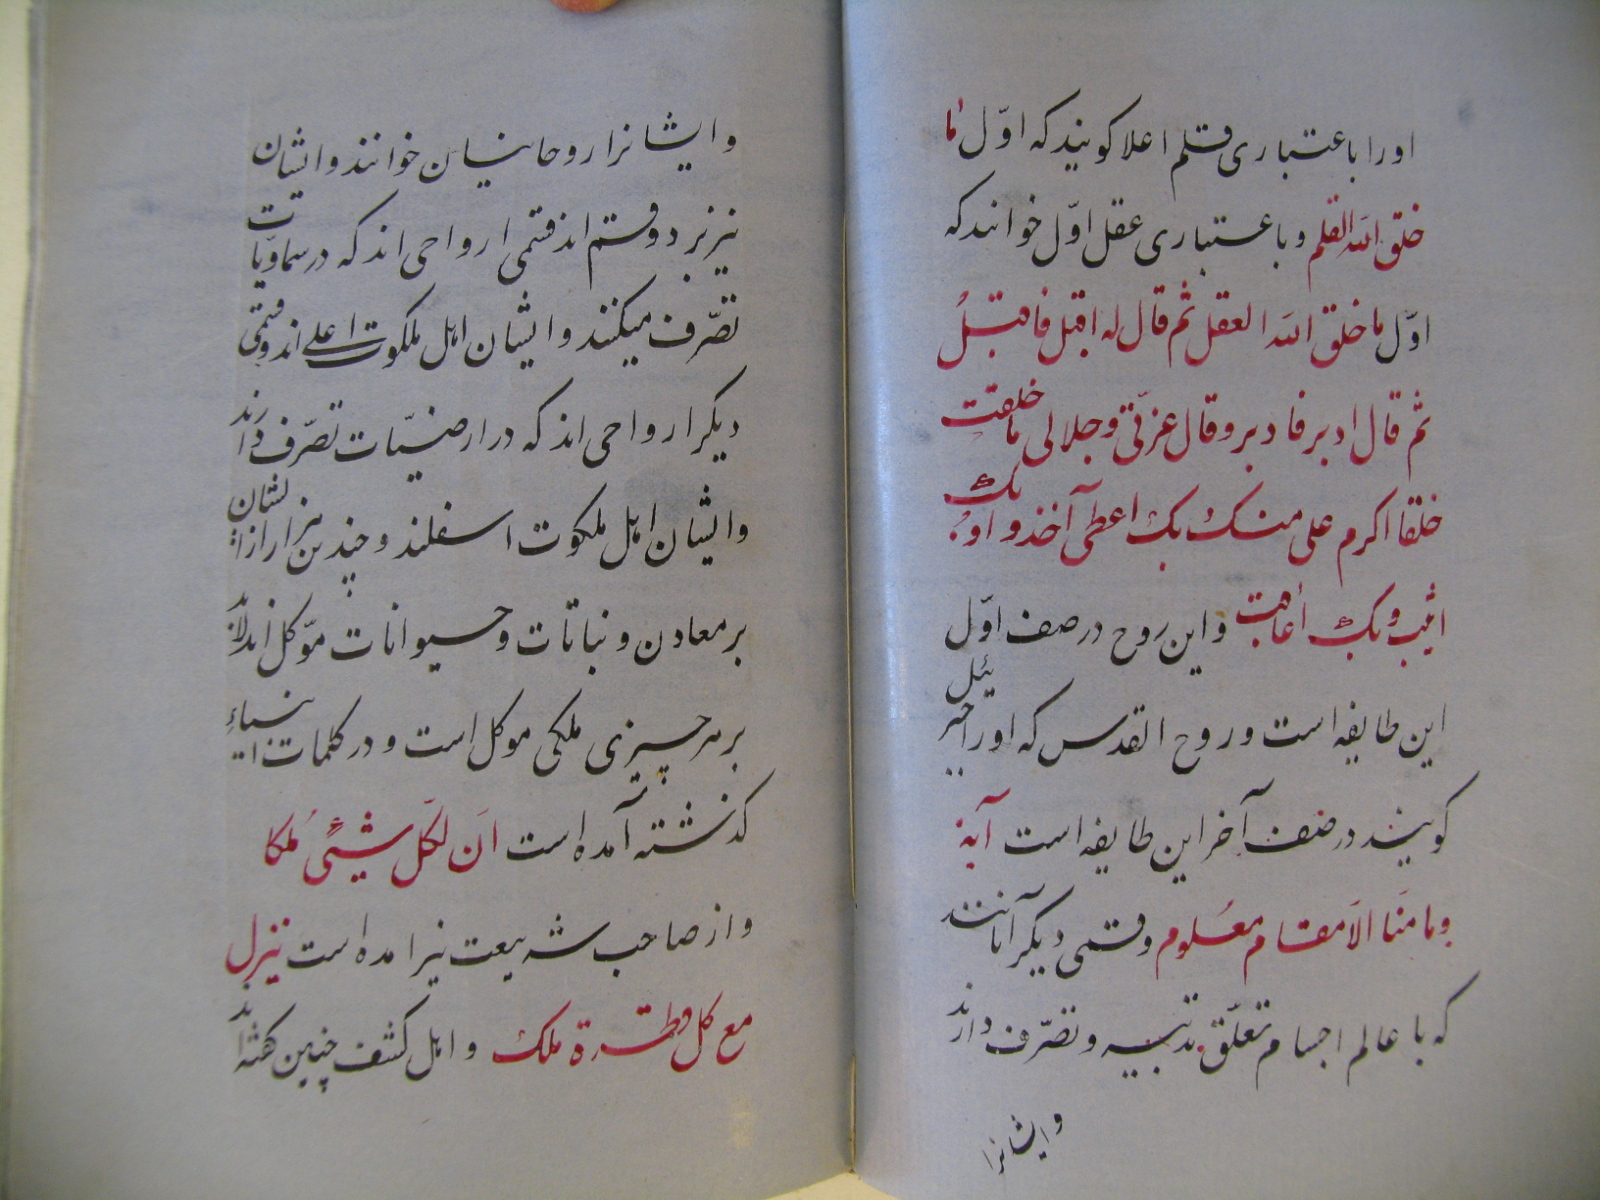 اورا باعتباری قلم اعلا کویند که اوّل ما
خلق الله القلم و باعتباری عقل اوّل خوانند که
اوّل ما خلق الله العقل ثم قال له اقبل فاقبلُ
ثم قال ادبر فادبر وقال عزّتی وجلالی ما خلقت
خلقا اکرم علی منک بک اعطی وبک آخذ و
اثیب وبک اعاقب و این روح در صف اوّل
این طایفه است و روح القدس که اورا جبرئیل
کویند در صف آخر این طایفه است آیة
وما منّا الا مقام معلوم وقسمی دیکر آنانند
که با عالم اجسام تعلّق تدبیر و تصرّف دارند
وایشانرا
وایشانرا روحانیان خوانند و ایشان
نیز بر دو قسم اند قسمی ارواحی اند که در سماویّات
تصرّف میکنند و ایشان اهل ملکوت اعلی اند و قسمی
دیکر ارواحی اند که در ارضیّات تصرّف دارند
وایشان اهل ملکوت اسفلند و چندین هزار از ایشان
بر معادن و نباتات و حیوانات موّکل اند بلکه
بر هر چیزی ملکی موکل است و در کلمات انبیاء
کذشته آمده است انّ لکلّ شیئٍ مُلکا
و از صاحب شریعت نیز امده است ینزل
مع کل قطرة ملک و اهل کشف چنین کفته اند